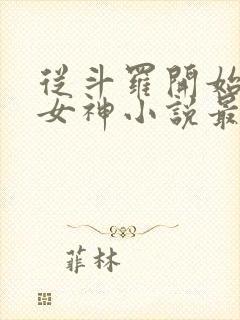 從斗羅開始
女神小說最
菲林